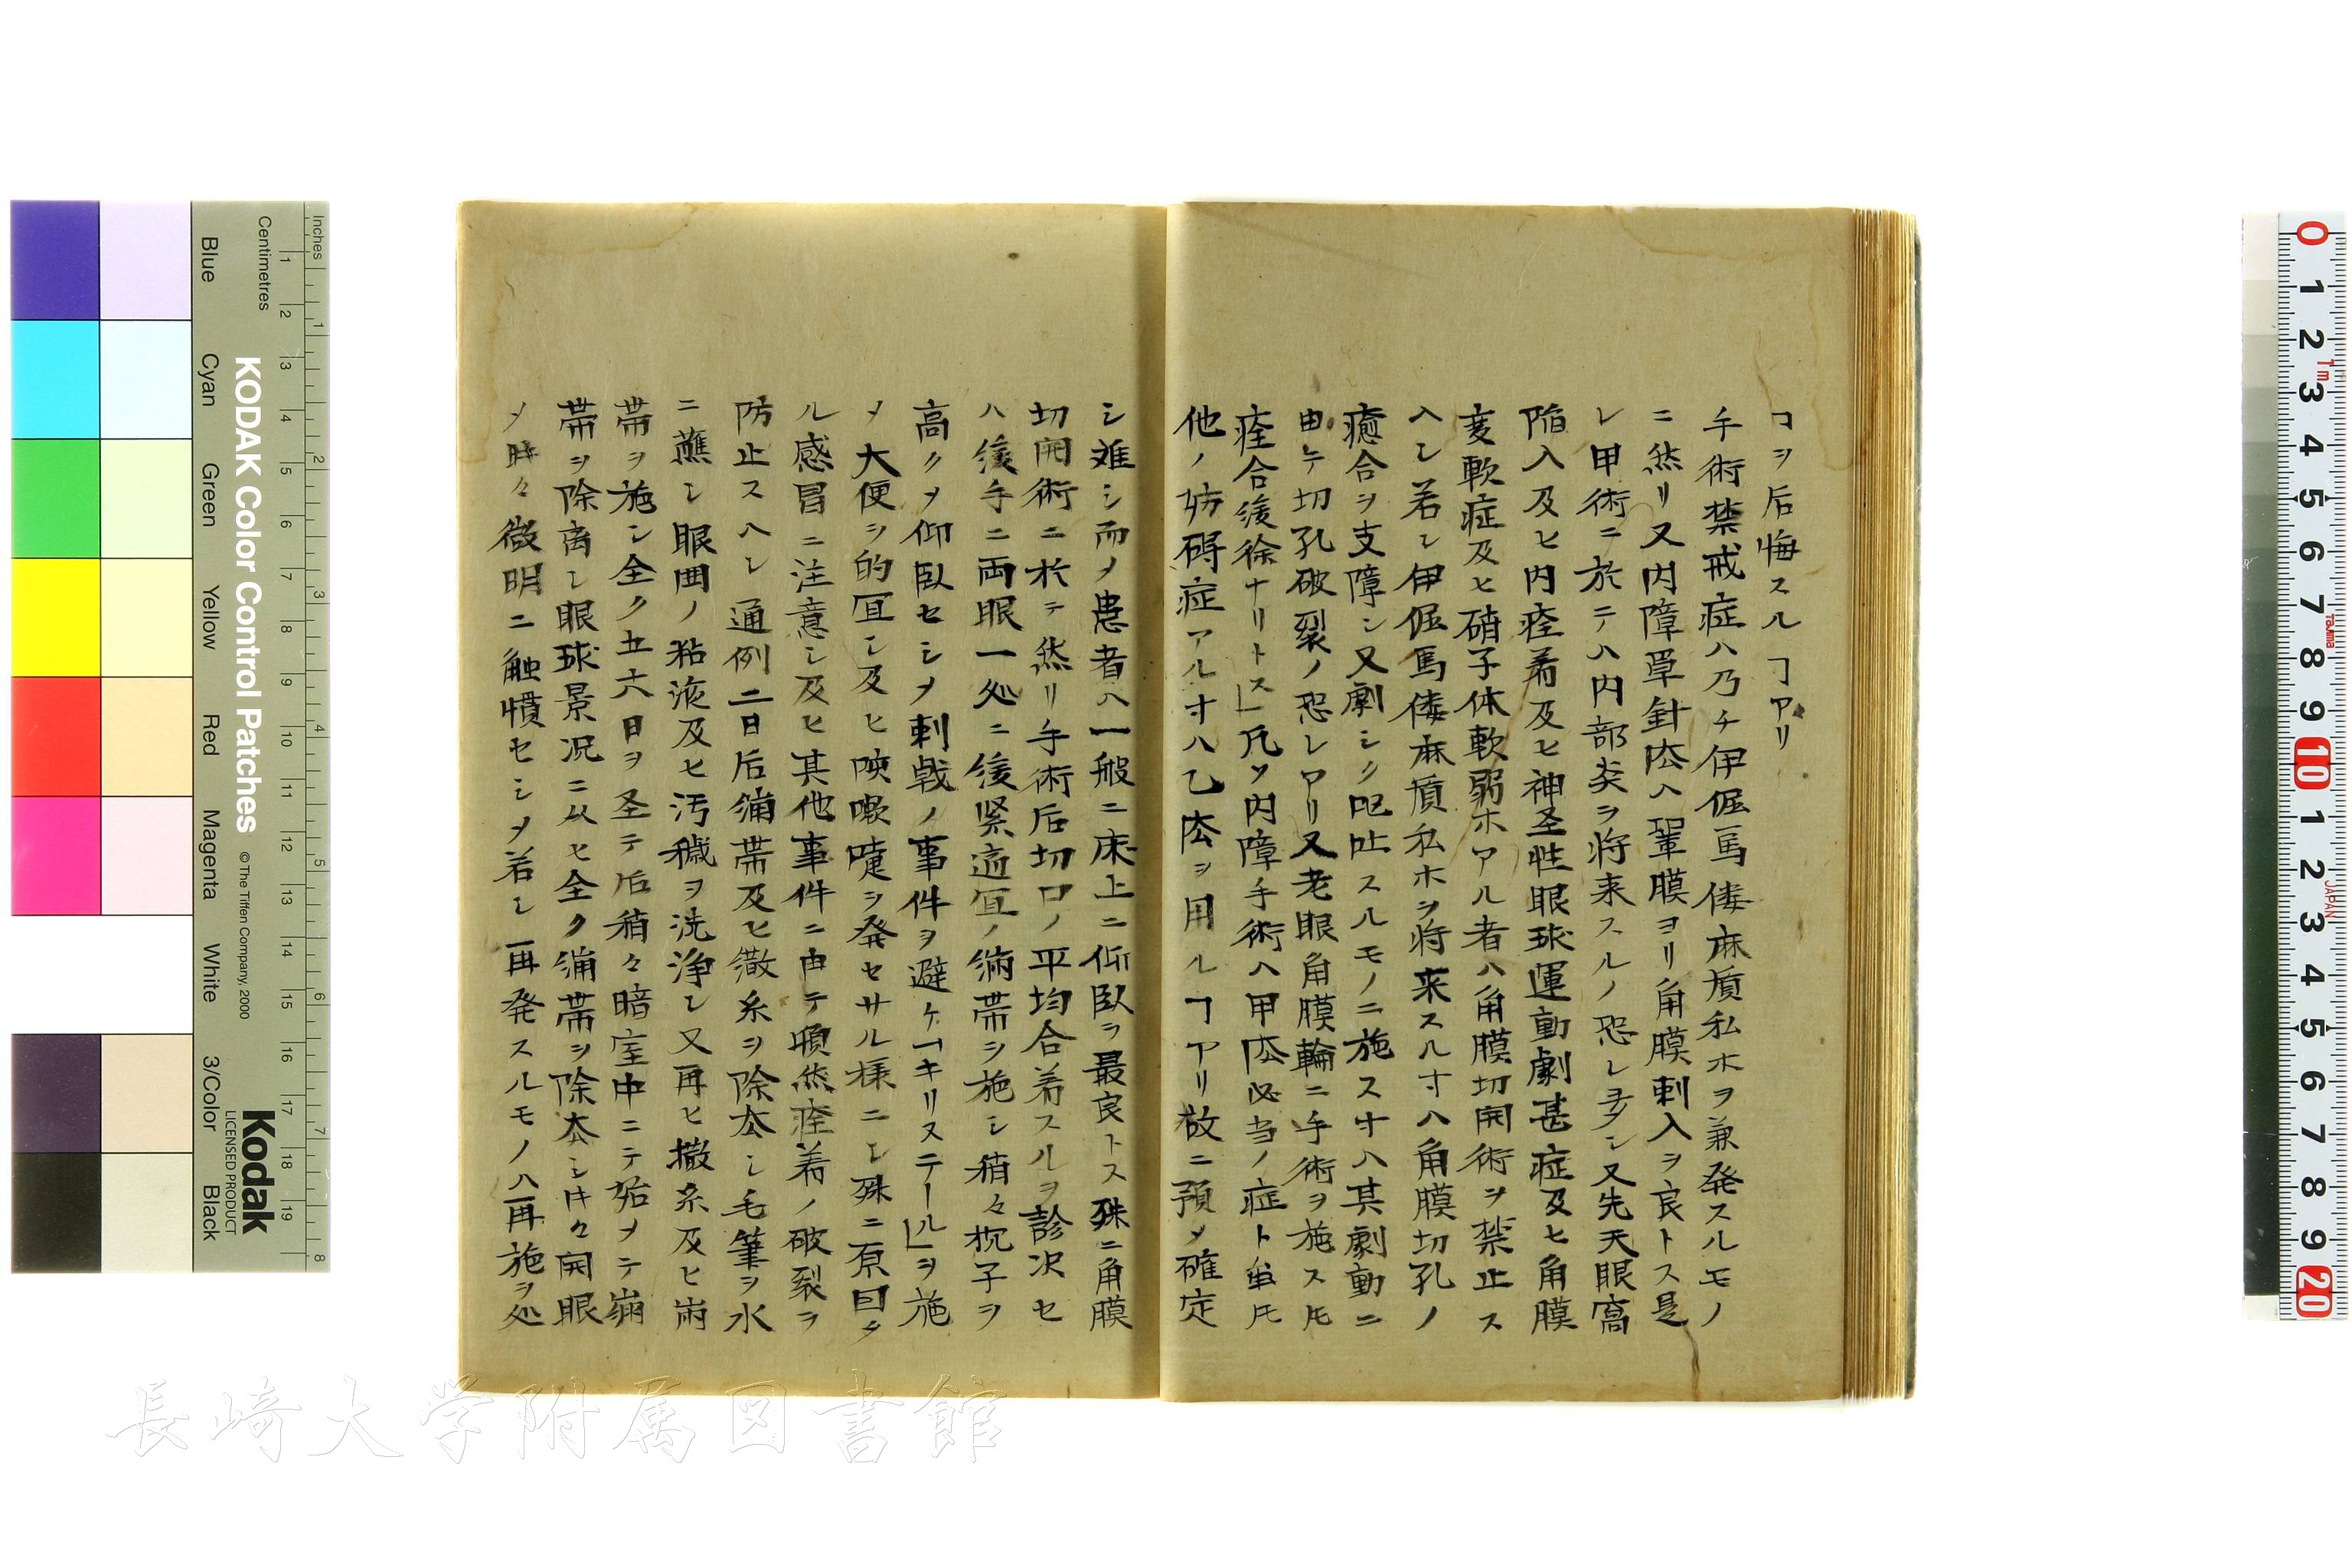 ヿヲ后悔スルヿアリ
手術禁戒症ハ乃チ伊倔馬倭麻質私ホヲ兼発スルモノ
ニ然リ又内障罩針㳒ハ鞏膜ヨリ角膜刺入ヲ良トス是
レ甲術ニ於テハ内部炎ヲ将来スルノ恐レヨクン又先天眼窩
陥入及ヒ内痊着及ヒ神圣性眼球運動劇甚症及ヒ角膜
変軟症及ヒ硝子体軟弱ホアル者ハ角膜切開術ヲ禁止ス
ヘシ若シ伊倔馬倭麻質私ホヲ将来スル寸ハ角膜切孔ノ
癒合ヲ支障シ又劇シク呕吐スルモノニ施ス寸ハ其劇動ニ
由テ切孔破裂ノ恐レアリ又老眼角膜輪ニ手術ヲ施ス㐧
痊合後徐ナリトス」凡ソ内障手術ヘ甲㳒必当ノ症ト雖㐧
他ノ妨碍症アル寸ハ乙㳒ヲ用ルヿアリ故ニ預メ確定
シ难シ而メ患者ハ一般ニ床上ニ仰臥ヲ最良トス殊ニ角膜
切開術ニ於テ然リ手術后切口ノ平均合着スルヲ診决セ
ハ後手ニ両眼一処ニ緩緊適宜ノ繃帯ヲ施シ稍々枕子ヲ
高クメ仰臥セシメ刺戟ノ事件ヲ避ケ「キリステール」ヲ施
メ大便ヲ的宜シ及ヒ咳嗽嚏ヲ発セサル様ニシ殊ニ原因タ
ル感冒ニ注意シ及ヒ其他事件ニ由テ頓然痊着ノ破裂ヲ
防止スヘシ通例二日后繃帯及ヒ撒糸ヲ除去シ毛筆ヲ水
ニ蘸シ眼囲ノ粘液及ヒ汚穢ヲ洗浄シ又再ヒ撒糸及ヒ繃
帯ヲ施シ全ク五六日ヲ圣テ后稍々暗室中ニテ始メテ繃
帯ヲ除离シ眼球景况ニ从ヒ全ク繃帯ヲ除去シ時々開眼
メ時々微明ニ触慣セシメ若シ再発スルモノハ再施ヲ処
KODAK Color Control Patches
© The Tiffen Company, 2000
Kodak
LICENSED PRODUCT
Inches
Centimetres
Blue
Cyan
Green
Yellow
Red
Magenta
White
3/Color
Black
長崎大学附属図書館